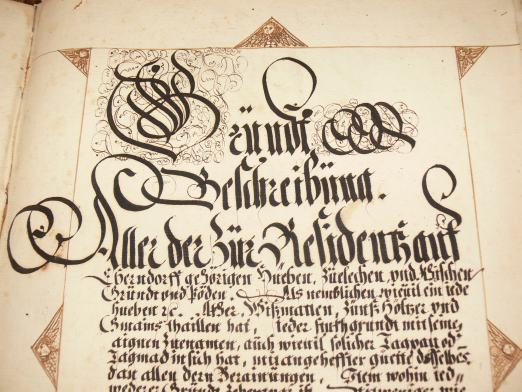 Gründt
Beschreibüng.
Aller der Zür Residentz auf
Eberndorff gehörigen Hueben, Zuelechen, und Wischen
Gründt und Poden. Als nemblichen, wieuil ein iede
hueben etc. Akher, Wißmatten, Holtzer und
Gmains thaillen hat, ieder grundt mit seine,
aignen Zuenamen, auch wieuil solicher Tagpau od,
Tagmad in sich hat, mit angeheffter guette desselbes,
dan allen dern Berainungen, Item wohin ied,